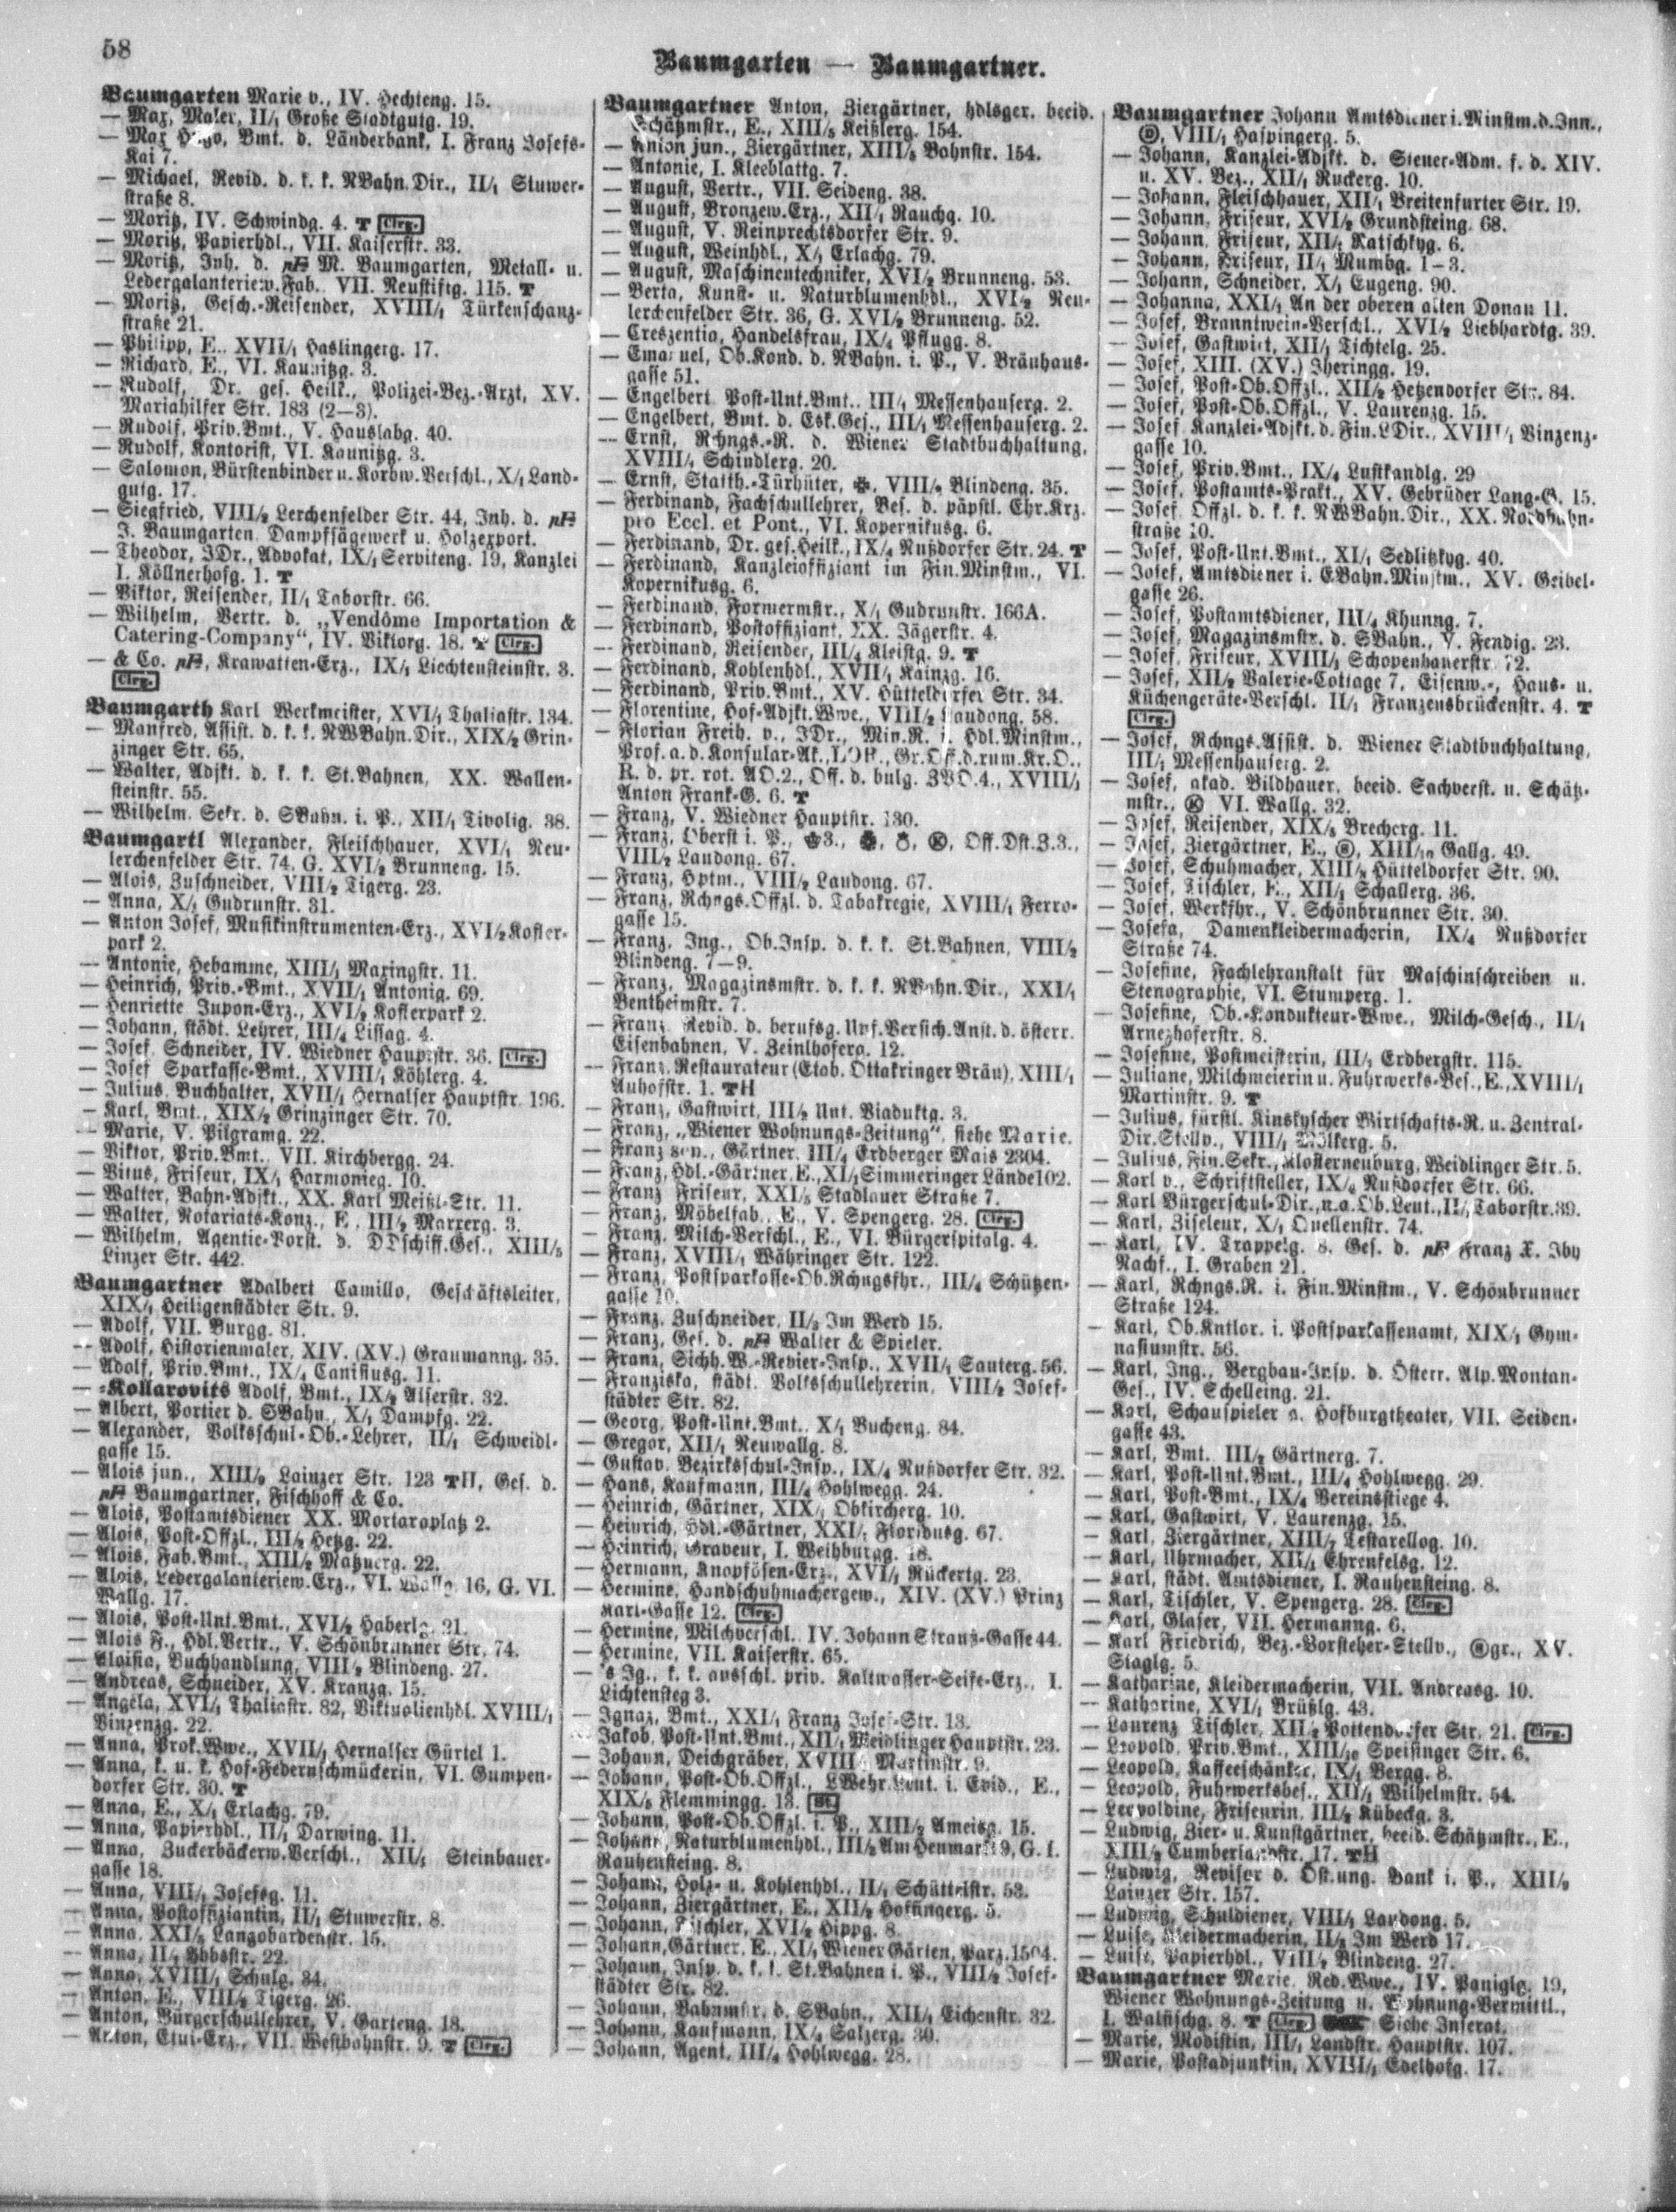 58
Baumgarten — Baumgartner.
Baumgarten Marie v., IV. Hechteng. 15.
— Max, Maler, II/1 Große Stadtgutg. 19.
— Max Hugo, Bmt. d. Länderbank, I. Franz Josefs-
Kai 7.
— Michael, Revid. d. k. k. NBahn.Dir., II/1 Stuwer-
straße 8.
— Moritz, IV. Schwindg. 4. T Clrg.
— Moritz, Papierhdl., VII. Kaiserstr. 33.
— Moritz, Inh. d. pF M. Baumgarten, Metall- u.
Ledergalanteriew.Fab. VII. Neustiftg. 115. T
— Moritz, Gesch.-Reisender, XVIII/1 Türkenschanz-
straße 21.
— Philipp, E., XVII/1 Haslingerg. 17.
— Richard, E., VI. Kaunitzg. 3.
— Rudolf, Dr. ges. Heilk., Polizei-Bez.-Arzt, XV.
Mariahilfer Str. 183 (2—3).
— Rudolf, Priv.Bmt., V. Hauslabg. 40.
— Rudolf, Kontorist, VI. Kaunitzg. 3.
— Salomon, Bürstenbinder u. Korbw.Verschl., X/1 Land-
gutg. 17.
— Siegfried, VIII/2 Lerchenfelder Str. 44, Inh. d. pF
J. Baumgarten, Dampfsägewerk u. Holzexport.
— Theodor, JDr., Advokat, IX/1 Serviteng. 19, Kanzlei
I. Köllnerhofg. 1. T
— Viktor, Reisender, II/1 Taborstr. 66.
— Wilhelm, Vertr. d. „Vendôme Importation &
Catering-Company“, IV. Viktorg. 18. T Clrg.
— & Co. pF, Krawatten-Erz., IX/1 Liechtensteinstr. 3.
Clrg.
Baumgarth Karl Werkmeister, XVI/1 Thaliastr. 134.
— Manfred, Assist. d. k. k. NWBahn.Dir., XIX/2 Grin-
zinger Str. 65.
— Walter, Adjkt. d. k. k. St.Bahnen, XX. Wallen-
steinstr. 55.
— Wilhelm, Sekr. d. SBahn. i. P., XII/1 Tivolig. 38.
Baumgartl Alexander, Fleischhauer, XVI/1 Neu-
lerchenfelder Str. 74, G. XVI/2 Brunneng. 15.
— Alois, Zuschneider, VIII/2 Tigerg. 23.
— Anna, X/1 Gudrunstr. 31.
— Anton Josef, Musikinstrumenten-Erz., XVI/2 Kofler-
park 2.
— Antonie, Hebamme, XIII/1 Maxingstr. 11.
— Heinrich, Priv.-Bmt., XVII/1 Antonig. 69.
— Henriette Jupon-Erz., XVI/2 Koflerpark 2.
— Johann, städt. Lehrer, III/4 Lissag. 4.
— Josef, Schneider, IV. Wiedner Hauptstr. 36. Clrg.
— Josef Sparkasse-Bmt., XVIII/1 Köhlerg. 4.
— Julius, Buchhalter, XVII/1 Hernalser Hauptstr. 196.
— Karl, Bmt., XIX/2 Grinzinger Str. 70.
— Marie, V. Pilgramg. 22.
— Viktor, Priv.Bmt., VII. Kirchbergg. 24.
— Vitus, Friseur, IX/1 Harmonieg. 10.
— Walter, Bahn-Adjkt., XX. Karl Meißl-Str. 11.
— Walter, Notariats-Konz., E., III/2 Marxerg. 3.
— Wilhelm, Agentie-Vorst. d. DDschiff.Ges., XIII/5
Linzer Str. 442.
Baumgartner Adalbert Camillo, Geschäftsleiter,
XIX/1 Heiligenstädter Str. 9.
— Adolf, VII. Burgg. 81.
— Adolf, Historienmaler, XIV. (XV.) Graumanng. 35.
— Adolf, Priv.Bmt., IX/4 Canisiusg. 11.
— -Kollarovits Adolf, Bmt., IX/2 Alserstr. 32.
— Albert, Portier d. SBahn., X/1 Dampfg. 22.
— Alexander, Volksschul-Ob.-Lehrer, II/1 Schweidl-
gasse 15.
— Alois jun., XIII/9 Lainzer Str. 123 TH, Ges. d.
pF Baumgartner, Fischhoff & Co.
— Alois, Postamtsdiener XX. Mortaraplatz 2.
— Alois, Post-Offzl., III/2 Hetzg. 22.
— Alois, Fab.Bmt., XIII/2 Matznerg. 22.
— Alois, Ledergalanteriew.Erz., VI. Wallg. 16, G. VI.
Wallg. 17.
— Alois, Post-Unt.Bmt., XVI/2 Haberlg. 21.
— Alois F., Hdl.Vertr., V. Schönbrunner Str. 74.
— Aloisia, Buchhandlung, VIII/2 Blindeng. 27.
— Andreas, Schneider, XV. Kranzg. 15.
— Angela, XVI/1 Thaliastr. 82, Viktualienhdl. XVIII/1
Vinzenzg. 22.
— Anna, Prok.Wwe., XVII/1 Hernalser Gürtel 1.
— Anna, k. u. k. Hof-Federnschmückerin, VI. Gumpen-
dorfer Str. 30. T
— Anna, E., X/1 Erlachg. 79.
— Anna, Papierhdl., II/1 Darwing. 11.
— Anna, Zuckerbäckerw.Verschl., XII/1 Steinbauer-
gasse 18.
— Anna, VIII/1 Josefsg. 11.
— Anna, Postoffiziantin, II/1 Stuwerstr. 8.
— Anna, XXI/5 Langobardenstr. 15.
— Anna, II/1 Ybbsstr. 22.
— Anna, XVIII/1 Schulg. 34.
— Anton, E., VIII/2 Tigerg. 26.
— Anton, Bürgerschullehrer, V. Garteng. 18.
— Anton, Etui-Erz., VII. Westbahnstr. 9. T Clrg.
Baumgartner Anton, Ziergärtner, hdlsger. beeid.
Schätzmstr., E., XIII/5 Keißlerg. 154.
— Anton jun., Ziergärtner, XIII/5 Bahnstr. 154.
— Antonie, I. Kleeblattg. 7.
— August, Vertr., VII. Seideng. 38.
— August, Bronzew.Erz., XII/1 Rauchg. 10.
— August, V. Reinprechtsdorfer Str. 9.
— August, Weinhdl., X/1 Erlachg. 79.
— August, Maschinentechniker, XVI/2 Brunneng. 53.
— Berta, Kunst- u. Naturblumenhdl., XVI/2 Neu-
lerchenfelder Str. 36, G. XVI/2 Brunneng. 52.
— Creszentia, Handelsfrau, IX/4 Pflugg. 8.
— Emanuel, Ob.Kond. d. NBahn. i. P., V. Bräuhaus-
gasse 51.
— Engelbert Post-Unt.Bmt., III/1 Messenhauserg. 2.
— Engelbert, Bmt. d. Esk.Ges., III/1 Messenhauserg. 2.
— Ernst, Rchngs.-R. d. Wiener Stadtbuchhaltung,
XVIII/1 Schindlerg. 20.
— Ernst, Statth.-Türhüter, VIII/2 Blindeng. 35.
— Ferdinand, Fachschullehrer, Bes. d. päpstl. Ehr.Krz.
pro Eccl. et Pont., VI. Kopernikusg. 6.
— Ferdinand, Dr. ges. Heilk., IX/4 Nußdorfer Str. 24. T
— Ferdinand, Kanzleioffiziant im Fin.Minstm., VI.
Kopernikusg. 6.
— Ferdinand, Formermstr., X/1 Gudrunstr. 166A.
— Ferdinand, Postoffiziant, XX. Jägerstr. 4.
— Ferdinand, Reisender, III/4 Kleistg. 9. T
— Ferdinand, Kohlenhdl., XVII/1 Kainzg. 16.
— Ferdinand, Priv.Bmt., XV. Hütteldorfer Str. 34.
— Florentine, Hof-Adjkt.Wwe., VIII/2 Laudong. 58.
— Florian Freih. v., JDr., Min.R. i. Hdl.Minstm.,
Prof. a. d. Konsular-Ak., Gr.Off.d.rum.Kr.O.,
R. d. pr. rot. AO.2., Off. d. bulg. ZVO.4., XVIII/1
Anton Frank-G. 6. T
— Franz, V. Wiedner Hauptstr. 130.
— Franz, Oberst i. P., Off. Dst.Z.3.,
VIII/2 Laudong. 67.
— Franz, Hptm., VIII/2 Laudong. 67.
— Franz, Rchngs.Offzl. d. Tabakregie, XVIII/1 Ferro-
gasse 15.
— Franz, Ing., Ob.Insp. d. k. k. St.Bahnen, VIII/2
Blindeng. 7—9.
— Franz, Magazinsmstr. d. k. k. NBahn.Dir., XXI/1
Bentheimstr. 7.
— Franz Revid. d. berufsg. Unf.Versich.Anst. d. österr.
Eisenbahnen, V. Zeinlhoferg. 12.
— Franz, Restaurateur (Etab. Ottakringer Bräu), XIII/1
Auhofstr. 1. TH
— Franz, Gastwirt, III/2 Unt. Viaduktg. 3.
— Franz, „Wiener Wohnungs-Zeitung“, siehe Marie.
— Franz sen., Gärtner, III/4 Erdberger Mais 2304.
— Franz, Hdl.-Gärtner, E., XI/1 Simmeringer Lände 102.
— Franz Friseur, XXI/5 Stadlauer Straße 7.
— Franz, Möbelfab., E., V. Spengerg. 28. Clrg.
— Franz, Milch-Verschl., E., VI. Bürgerspitalg. 4.
— Franz, XVIII/1 Währinger Str. 122.
— Franz, Postsparkasse-Ob.Rchngsfhr., III/4 Schützen-
gasse 10.
— Franz, Zuschneider, II/2 Im Werd 15.
— Franz, Ges. d. pF Walter & Spieler.
— Franz, Sichh.W.-Revier-Insp., XVII/1 Sauterg. 56.
— Franziska, städt. Volksschullehrerin, VIII/2 Josef-
städter Str. 82.
— Georg, Post-Unt.Bmt., X/1 Bucheng. 84.
— Gregor, XII/1 Neuwallg. 8.
— Gustav, Bezirksschul-Insp., IX/4 Nußdorfer Str. 32.
— Hans, Kaufmann, III/4 Hohlwegg. 24.
— Heinrich, Gärtner, XIX/1 Obkircherg. 10.
— Heinrich, Hdl.-Gärtner, XXI/1 Floridusg. 67.
— Heinrich, Graveur, I. Weihburgg. 18.
— Hermann, Knopfösen-Erz., XVI/1 Rückertg. 23.
— Hermine, Handschuhmachergew., XIV. (XV.) Prinz
Karl-Gasse 12. Clrg.
— Hermine, Milchverschl., IV. Johann Strauß-Gasse 44.
— Hermine, VII. Kaiserstr. 65.
— 's Ig., k. k. ausschl. priv. Kaltwasser-Seife-Erz., I.
Lichtensteg 3.
— Ignaz, Bmt., XXI/1 Franz Josef-Str. 13.
— Jakob, Post-Unt.Bmt., XII/1 Meidlinger Hauptstr. 23.
— Johann, Deichgräber, XVIII/1 Martinstr. 9.
— Johann, Post-Ob.Offzl., LWehr.Leut. i. Evid., E.,
XIX/5 Flemmingg. 13. St.
— Johann, Post-Ob.Offzl. i. P., XIII/2 Ameisg. 15.
— Johann, Naturblumenhdl., III/2 Am Heumarkt 9, G. I.
Rauhensteing. 8.
— Johann, Holz- u. Kohlenhdl., II/1 Schüttelstr. 53.
— Johann, Ziergärtner, E., XII/2 Hoffingerg. 5.
— Johann, Tischler, XVI/2 Hippg. 8.
— Johann, Gärtner, E., XI/1 Wiener Gärten, Parz. 1504.
— Johann, Insp. d. k. k. St.Bahnen i. P., VIII/2 Josef-
städter Str. 82.
— Johann, Bahnmstr. d. SBahn., XII/1 Eichenstr. 32.
— Johann, Kaufmann, IX/4 Salzerg. 30.
— Johann, Agent, III/4 Hohlwegg. 28.
Baumgartner Johann Amtsdiener i. Minstm.d.Inn.,
VIII/1 Haspingerg. 5.
— Johann, Kanzlei-Adjkt. d. Steuer-Adm. f. d. XIV.
u. XV. Bez., XII/1 Ruckerg. 10.
— Johann, Fleischhauer, XII/1 Breitenfurter Str. 19.
— Johann, Friseur, XVI/2 Grundsteing. 68.
— Johann, Friseur, XII/1 Ratschkyg. 6.
— Johann, Friseur, II/1 Mumbg. 1–3.
— Johann, Schneider, X/1 Eugeng. 90.
— Johanna, XXI/1 An der oberen alten Donau 11.
— Josef, Branntwein-Verschl., XVI/2 Liebhardtg. 39.
— Josef, Gastwirt, XII/1 Tichtelg. 25.
— Josef, XIII. (XV.) Iheringg. 19.
— Josef, Post-Ob.Offzl., XII/2 Hetzendorfer Str. 84.
— Josef, Post-Ob.Offzl., V. Laurenzg. 15.
— Josef, Kanzlei-Adjkt. d. Fin.LDir., XVIII/1 Vinzenz-
gasse 10.
— Josef, Priv.Bmt., IX/4 Lustkandlg. 29
— Josef, Postamts-Prakt., XV. Gebrüder Lang-G. 15.
— Josef Offzl. d. k. k. NWBahn.Dir., XX. Nordbahn-
straße 10.
— Josef, Post-Unt.Bmt., XI/1 Sedlitzkyg. 40.
— Josef, Amtsdiener i. EBahn.Minstm., XV. Geibel-
gasse 26.
— Josef, Postamtsdiener, III/4 Khunng. 7.
— Josef, Magazinsmstr. d. SBahn., V. Fendig. 23.
— Josef, Friseur, XVIII/1 Schopenhauerstr. 72.
— Josef, XII/2 Valerie-Cottage 7, Eisenw.-, Haus- u.
Küchengeräte-Verschl. II/1 Franzensbrückenstr. 4. T
Clrg.
— Josef, Rchngs.Assist. d. Wiener Stadtbuchhaltung,
III/1 Messenhauserg. 2.
— Josef, akad. Bildhauer, beeid. Sachverst. u. Schätz-
mstr., VI. Wallg. 32.
— Josef, Reisender, XIX/5 Brecherg. 11.
— Josef, Ziergärtner, E., XIII/10 Gallg. 49.
— Josef, Schuhmacher, XIII/2 Hütteldorfer Str. 90.
— Josef, Tischler, E., XII/1 Schallerg. 36.
— Josef, Werkfhr., V. Schönbrunner Str. 30.
— Josefa, Damenkleidermacherin, IX/4 Nußdorfer
Straße 74.
— Josefine, Fachlehranstalt für Maschinschreiben u.
Stenographie, VI. Stumperg. 1.
— Josefine, Ob.-Kondukteur-Wwe., Milch-Gesch., II/1
Arnezhoferstr. 8.
— Josefine, Postmeisterin, III/1 Erdbergstr. 115.
— Juliane, Milchmeierin u. Fuhrwerks-Bes., E., XVIII/1
Martinstr. 9. T
— Julius, fürstl. Kinskyscher Wirtschafts-R. u. Zentral-
Dir.Stellv., VIII/1 Mölkerg. 5.
— Julius, Fin.Sekr., Klosterneuburg, Weidlinger Str. 5.
— Karl v., Schriftsteller, IX/4 Nußdorfer Str. 66.
— Karl Bürgerschul-Dir., n.a.Ob.Leut., II/1 Taborstr. 39.
— Karl, Ziseleur, X/1 Quellenstr. 74.
— Karl, IV. Trappelg. 8. Ges. d. pF Franz X. Iby
Nachf., I. Graben 21.
— Karl, Rchngs.R. i. Fin.Minstm., V. Schönbrunner
Straße 124.
— Karl, Ob.Kntlor. i. Postsparkassenamt, XIX/1 Gym-
nasiumstr. 56.
— Karl, Ing., Bergbau-Insp. d. Österr. Alp.Montan-
Ges., IV. Schelleing. 21.
— Karl, Schauspieler a. Hofburgtheater, VII. Seiden-
gasse 43.
— Karl, Bmt. III/2 Gärtnerg. 7.
— Karl, Post-Unt.Bmt., III/4 Hohlwegg. 29.
— Karl, Post-Bmt., IX/4 Vereinsstiege 4.
— Karl, Gastwirt, V. Laurenzg. 15.
— Karl, Ziergärtner, XIII/7 Testarellog. 10.
— Karl, Uhrmacher, XII/1 Ehrenfelsg. 12.
— Karl, städt. Amtsdiener, I. Rauhensteing. 8.
— Karl, Tischler, V. Spengerg. 28. Clrg.
— Karl, Glaser, VII. Hermanng. 6.
— Karl Friedrich, Bez.-Vorsteher-Stellv., gr., XV.
Staglg. 5.
— Katharine, Kleidermacherin, VII. Andreasg. 10.
— Katharine, XVI/1 Brüßlg. 43.
— Laurenz Tischler, XII/2 Pottendorfer Str. 21. Clrg.
— Leopold, Priv.Bmt., XIII/10 Speisinger Str. 6.
— Leopold, Kaffeeschänker, IX/1 Bergg. 8.
— Leopold, Fuhrwerksbes., XII/1 Wilhelmstr. 54.
— Leopoldine, Friseurin, III/2 Kübeckg. 3.
— Ludwig, Zier- u. Kunstgärtner, beeid. Schätzmstr., E.,
XIII/2 Cumberlandstr. 17. TH
— Ludwig, Revisor d. Öst.ung. Bank i. P., XIII/9
Lainzer Str. 157.
— Ludwig, Schuldiener, VIII/1 Laudong. 5.
— Luise, Kleidermacherin, II/2 Im Werd 17.
— Luise, Papierhdl., VIII/2 Blindeng. 27.
Baumgartner Marie, Red.Wwe., IV. Paniglg. 19,
Wiener Wohnungs-Zeitung u. Wohnung-Vermittl.,
I. Walfischg. 8. T Clrg. Siehe Inserat.
— Marie, Modistin, III/1 Landstr. Hauptstr. 107.
— Marie, Postadjunktin, XVIII/1 Edelhofg. 17.